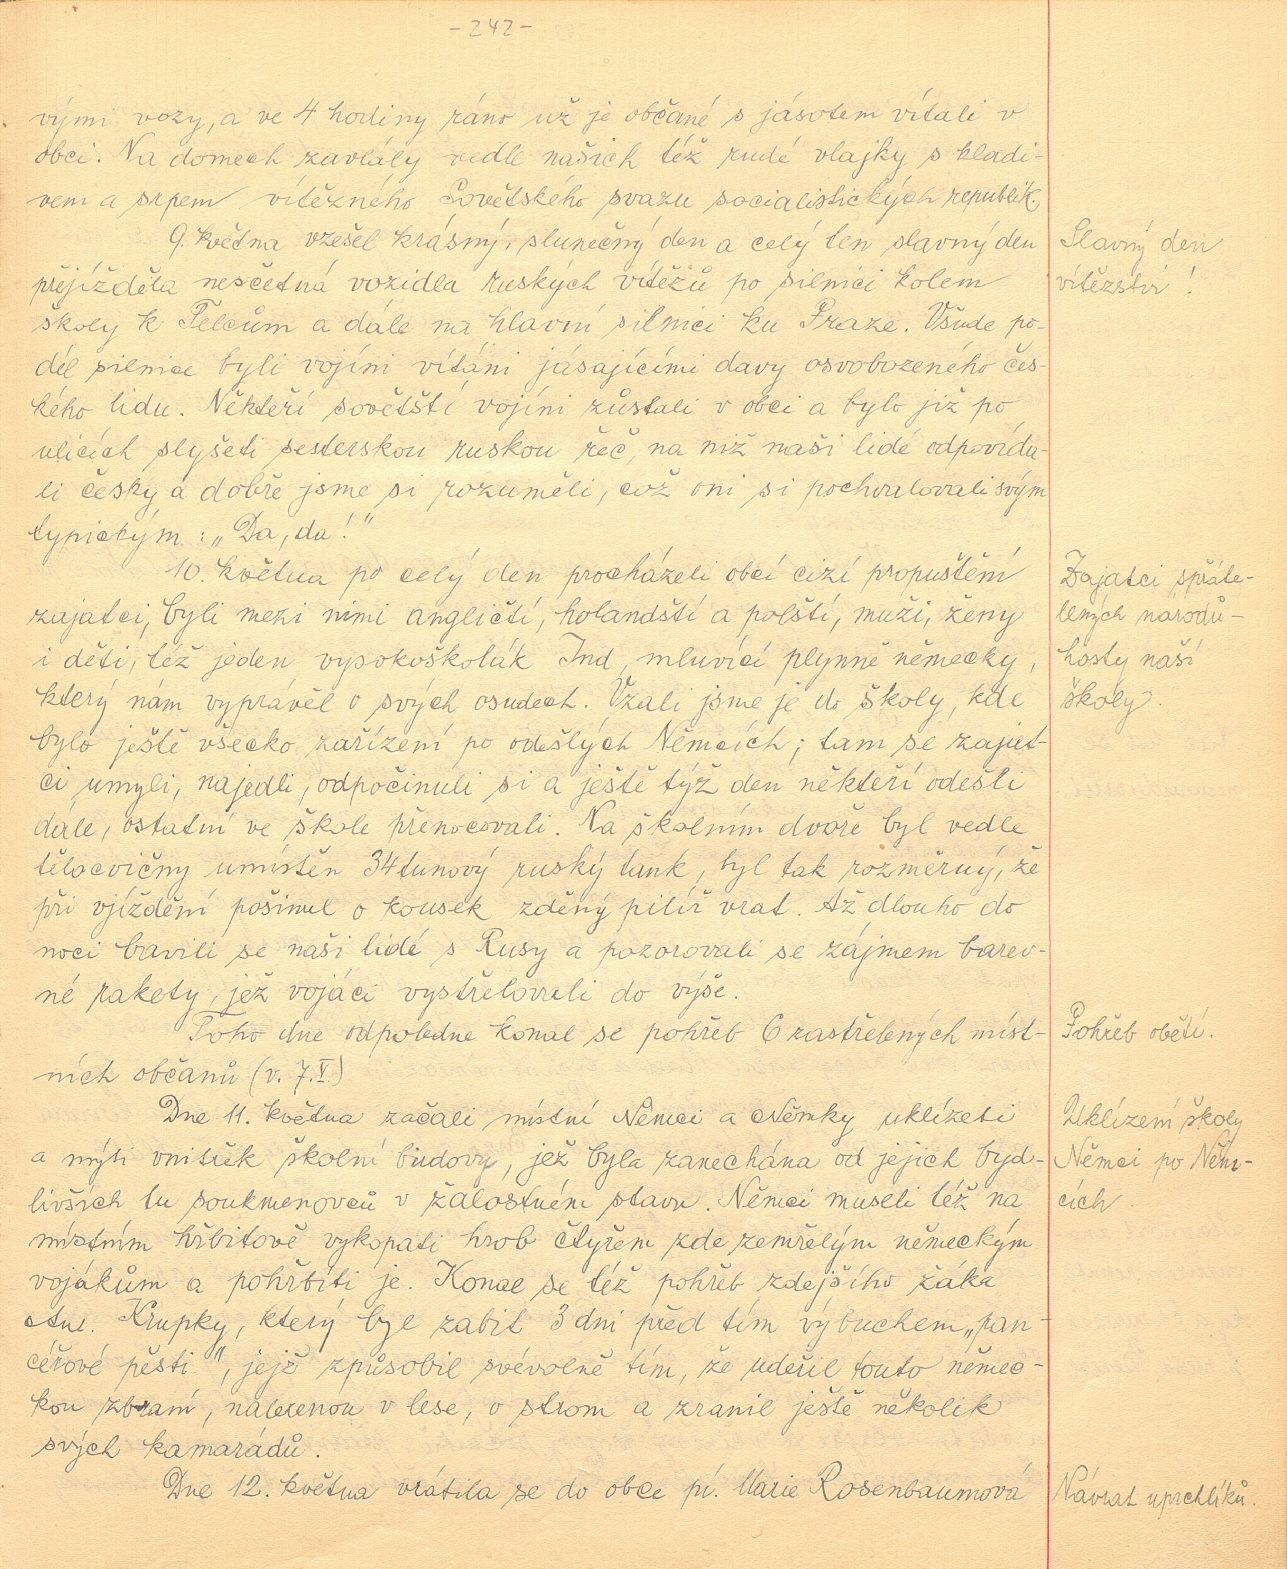 -242-
vými vozy, a ve 4 hodiny ráno už je občané s jásotem vítali v
obci. Na domech zavlály vedle našich též rudé vlajky s kladi-
vem a srpem vítězného Sovětského svazu socialistických republik.
9. května vzešel krásný, slunečný den a celý ten slavný den
přejížděla nesčetná vozidla ruských vítězů po silnici kolem
školy k Telcům a dále na hlavní silnici ku Praze. Všude po-
dél silnice byli vojíni vítáni jásajícími davy osvobozeného čes-
kého lidu. Někteří sovětští vojíni zůstali v obci a bylo již po
ulicích slyšeti sesterskou ruskou řeč, na niž naši lidé odpovída-
li česky a dobře jsme si rozuměli, což oni si pochvalovali svým
typickým: „Da, da!"
Slavný den
vítězství!
10. května po celý den procházeli obcí cizí propuštění
zajatci, byli mezi nimi angličtí, holandští a polští, muži, ženy
i děti, též jeden vysokoškolák Ind, mluvící plynně německy,
který nám vyprávěl o svých osudech. Vzali jsme je do školy, kde
bylo ještě všecko zařízení po odešlých Němcích; tam se zajat-
ci umyli, najedli, odpočinuli si a ještě týž den někteří odešli
dále, ostatní ve škole přenocovali. Na školním dvoře byl vedle
tělocvičny umístěn 34tunový ruský tank, byl tak rozměrný, že
při vjíždění pošinul o kousek zděný pilíř vrat. Až dlouho do
noci bavili se naši lidé s Rusy a pozorovali se zájmem barev-
né rakety, jež vojáci vystřelovali do výše.
Zajatci spřáte-
lených narodů-
hosty naší
školy.
Toho dne odpoledne konal se pohřeb 6 zastřelených míst-
ních občanů (v. 7.V.)
Pohřeb obětí.
Dne 11. května začali místní Němci a Němky uklízeti
a mýti vnitřek školní budovy, jež byla zanechána od jejich byd-
livších tu soukmenovců v žalostném stavu. Němci museli též na
místním hřbitově vykopati hrob čtyřem zde zemřelým německým
vojákům a pohřbíti je. Konal se též pohřeb zdejšího žáka
Ant. Krupky, který byl zabit 3 dni před tím výbuchem „pan-
céřové pěsti", jejž způsobil svévolně tím, že udeřil touto němec-
kou zbraní, nalezenou v lese, o strom a zranil ještě několik
svých kamarádů.
Uklízení školy
Němci po Něm-
cích.
Dne 12. května vrátila se do obce pí. Marie Rosenbaumová
Návrat uprchlíků.